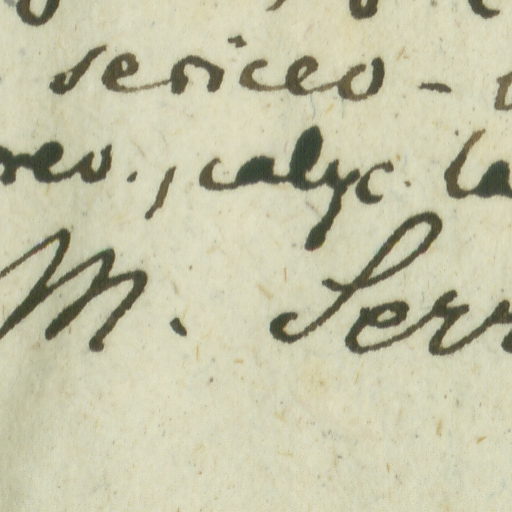 sericeo -
reo., calyc. la
M. Serr